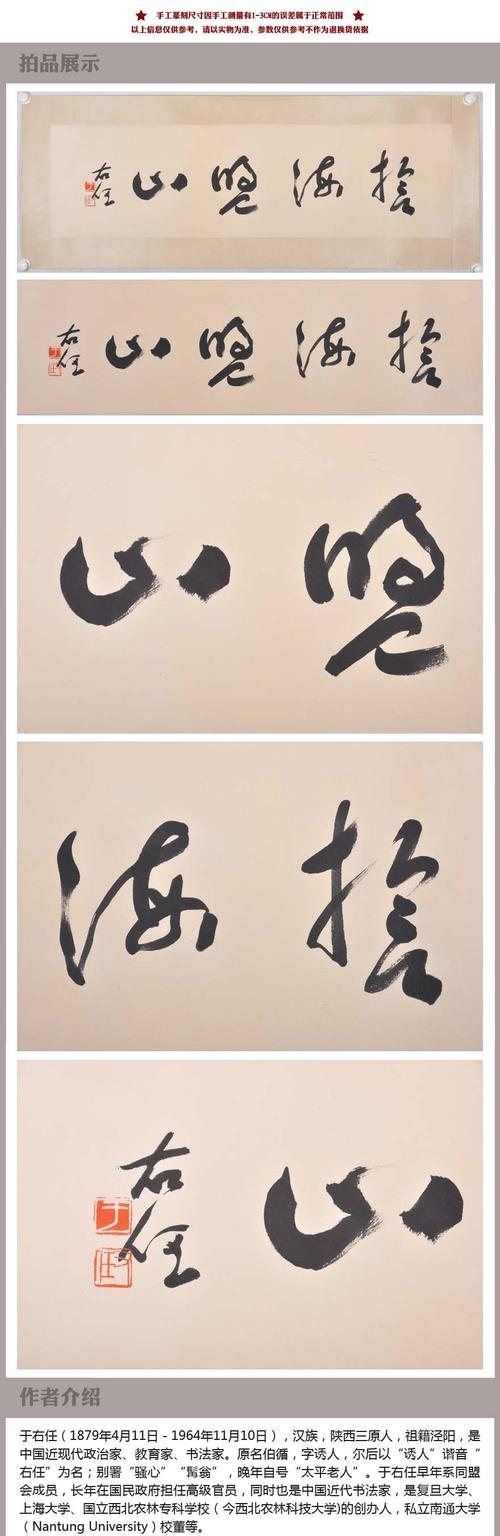 ★ 手工篆刻尺寸因手工测量有1-3CM的误差属于正常范围 ★
以上信息仅供参考，请以实物为准，参数仅供参考不作为退换货依据
拍品展示
誓海盟山
右任
誓海盟山
右任
盟山
誓海
山
右任
作者介绍
于右任（1879年4月11日－1964年11月10日），汉族，陕西三原人，祖籍泾阳，是
中国近现代政治家、教育家、书法家。原名伯循，字诱人，尔后以“诱人”谐音“
右任”为名；别署“骚心”“髯翁”，晚年自号“太平老人”。于右任早年系同盟
会成员，长年在国民政府担任高级官员，同时也是中国近代书法家，是复旦大学、
上海大学、国立西北农林专科学校（今西北农林科技大学)的创办人，私立南通大学
（Nantung University）校董等。